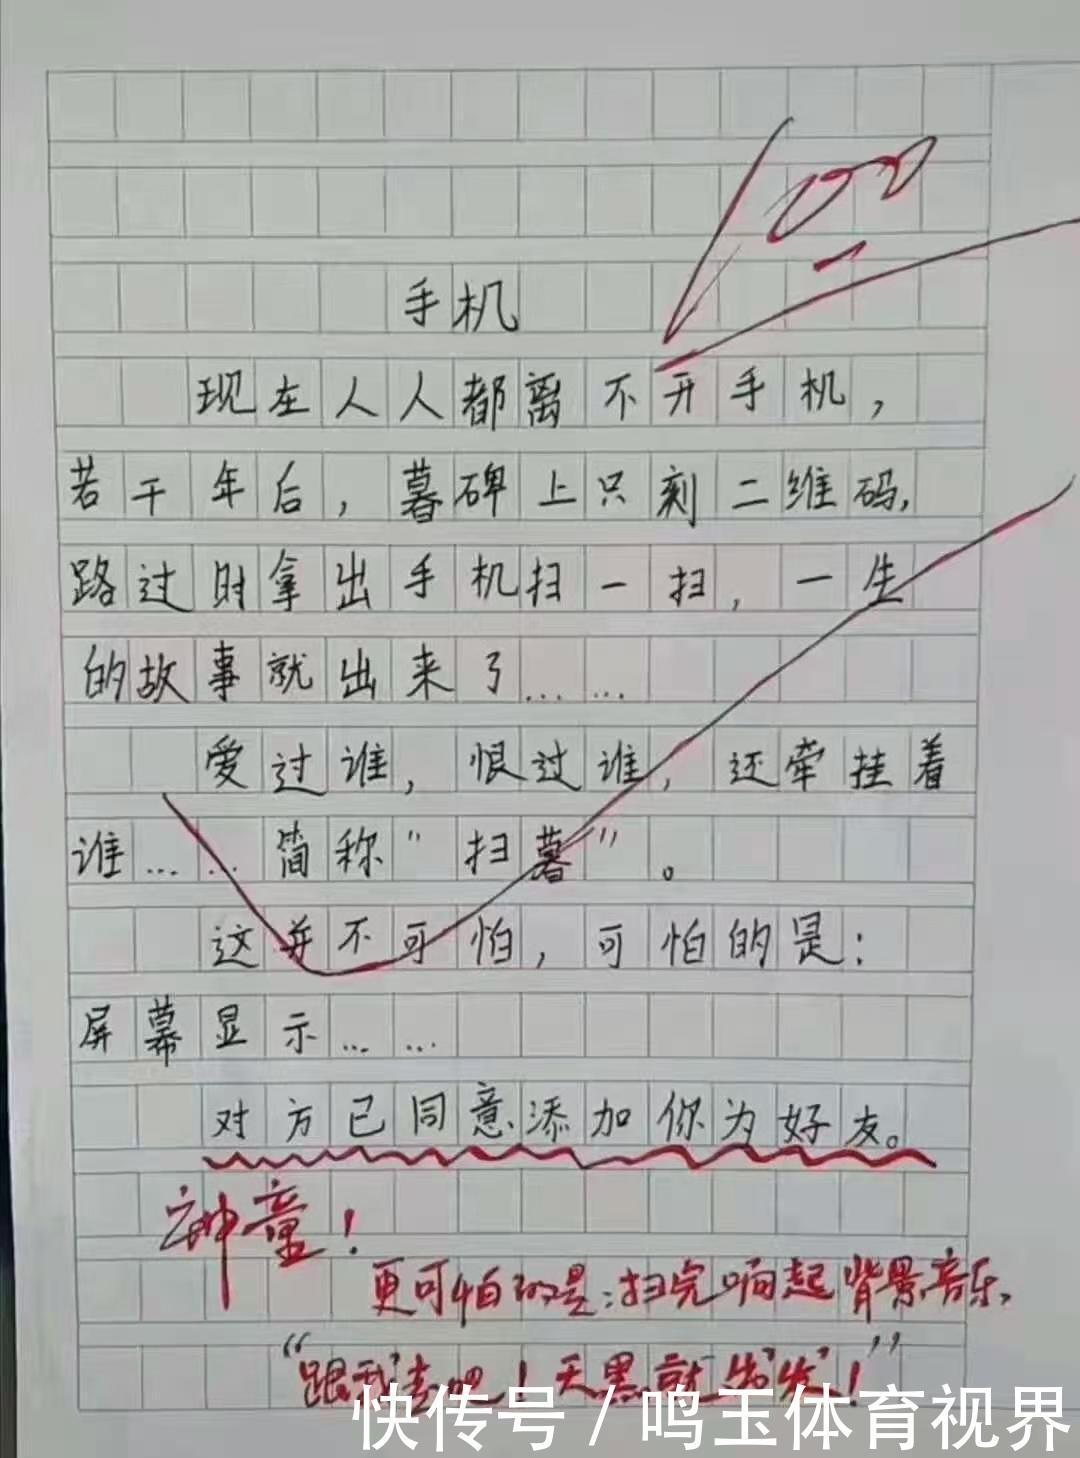 100
手机
现在人人都离不开手机，
若干年后，暮碑上只刻二维码，
路过时拿出手机扫一扫，一生
的故事就出来了……
爱过谁，恨过谁，还牵挂着
谁……简称"扫暮"。
这并不可怕，可怕的是：
屏幕显示……
对方已同意添加你为好友。
神童！
更可怕的是：扫完响起背景音乐，
"跟我去吧！天黑就出发！"
快传号／鸣玉体育视界